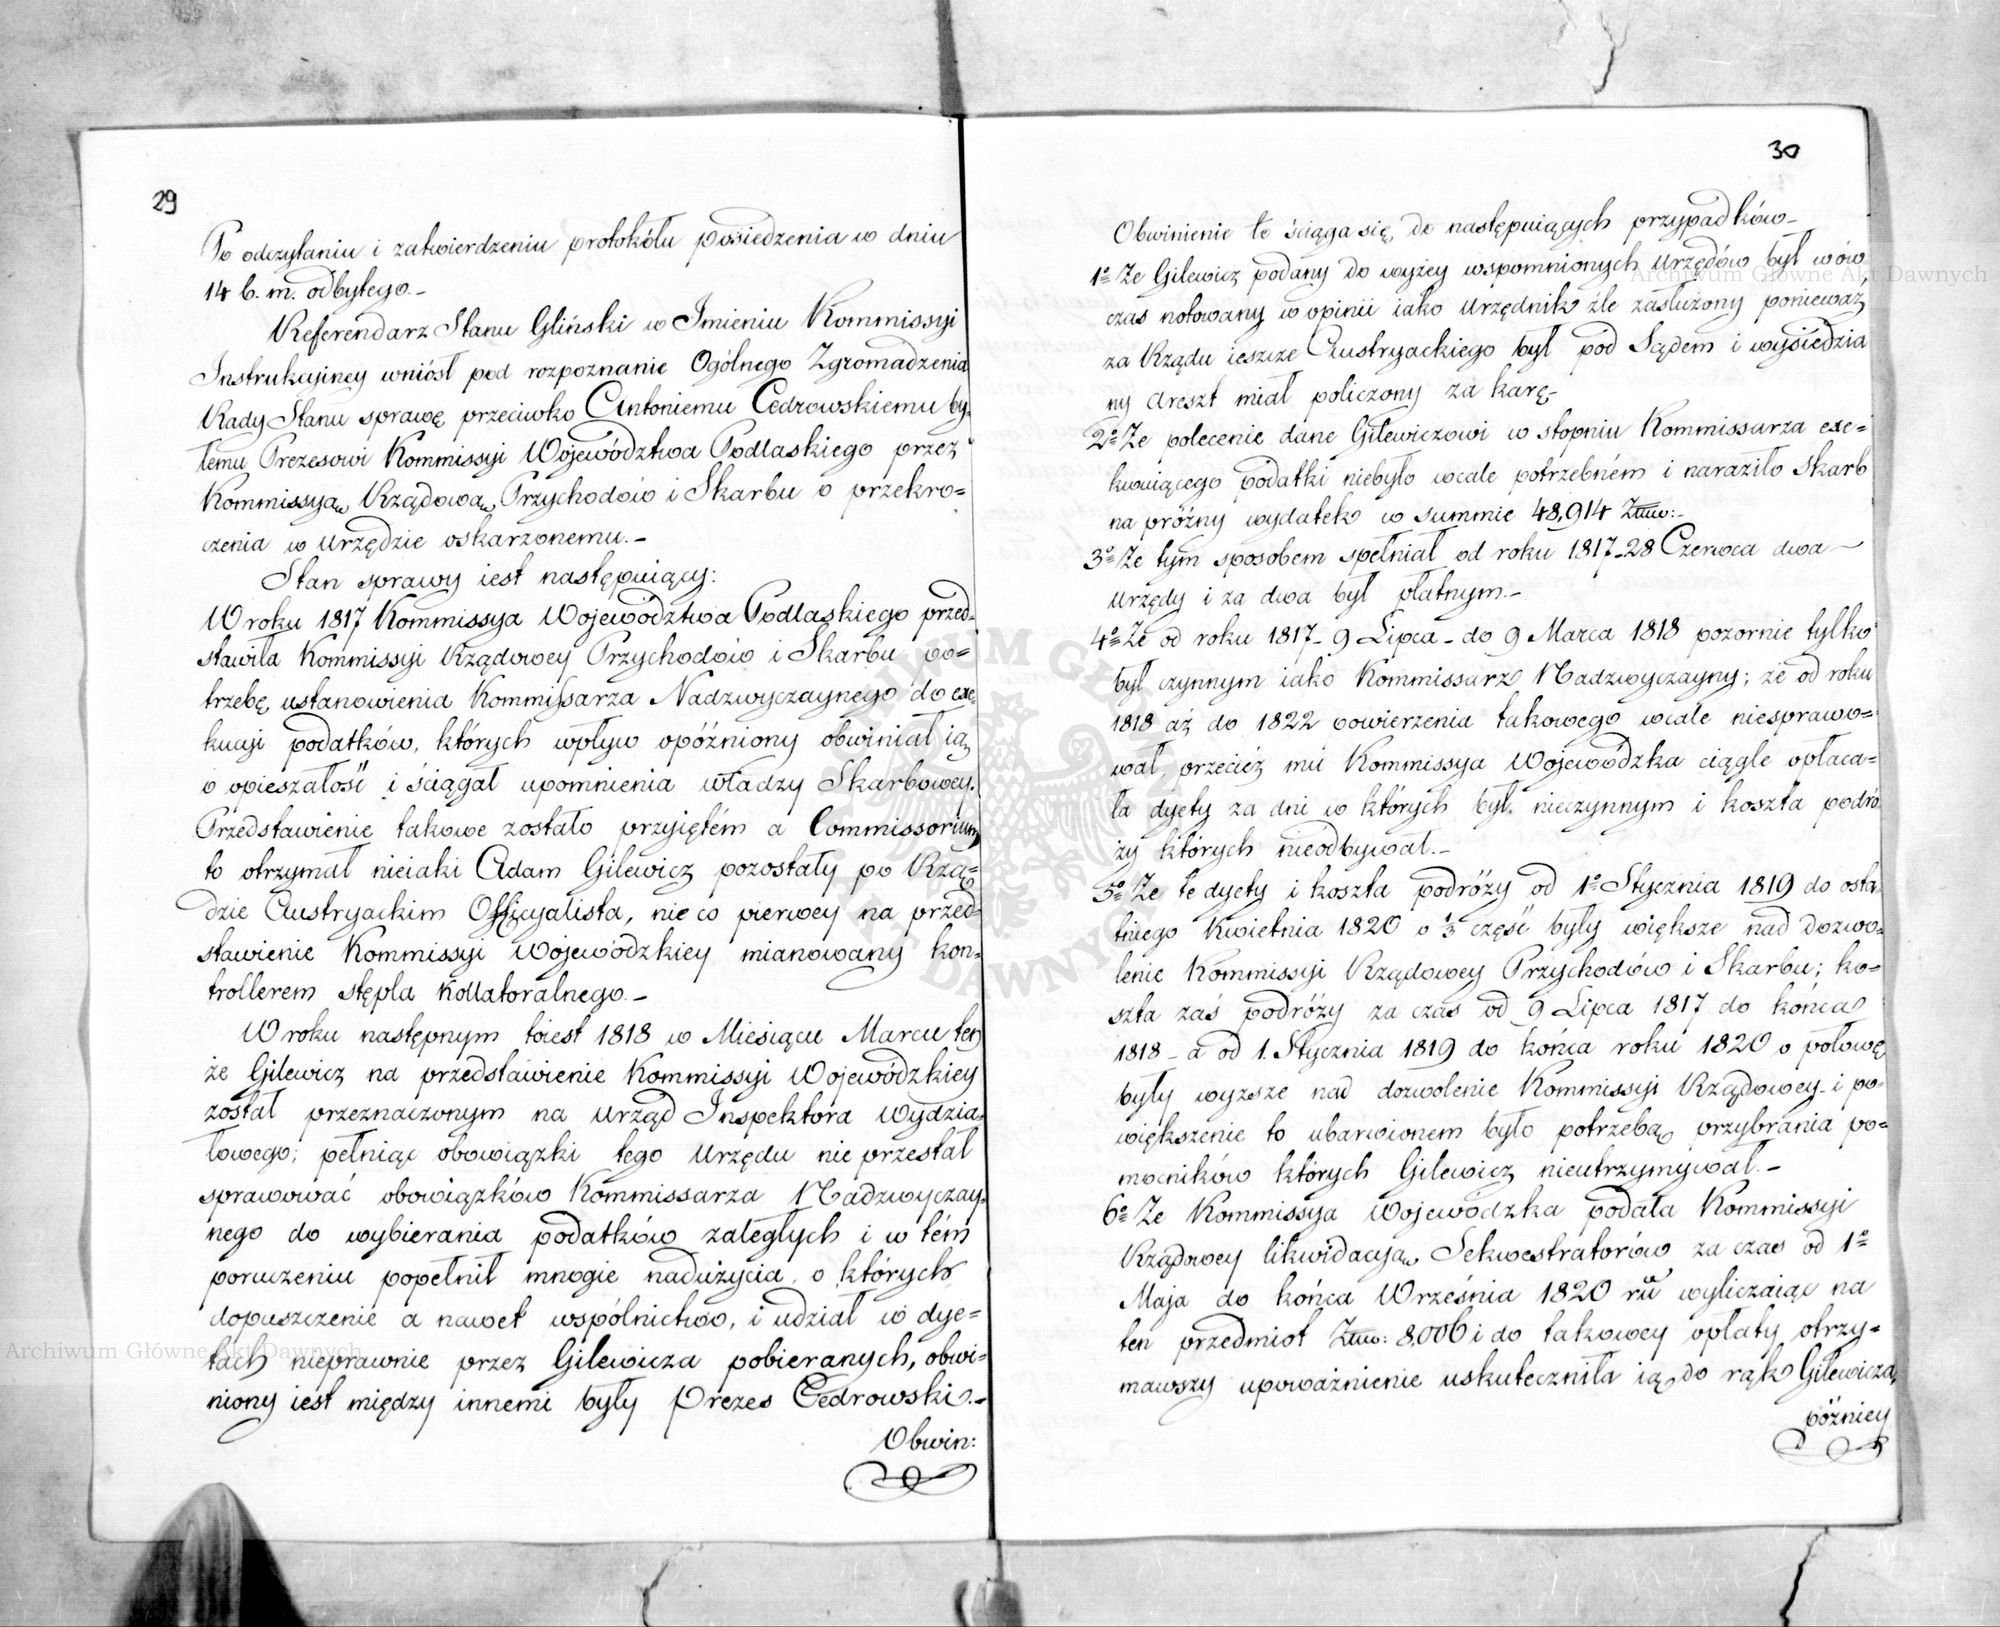 29
Po odczytaniu i zatwierdzeniu protokółu posiedzenia w dniu
14 b. m. odbytego.-
Referendarz Stanu Gliński w Imieniu Kommissyi
Instrukcyiney wniósł pod rozpoznanie Ogólnego Zgromadzenia
Rady Stanu sprawę przeciwko Antoniemu Cedrowskiemu by-
łemu Prezesowi Kommissyi Województwa Podlaskiego przez
Kommissyą Rządową Przychodów i Skarbu o przekro=
czenia w urzędzie oskarzonemu.-
Stan sprawy iest następuiący:
W roku 1817 Kommissya Województwa Podlaskiego przed-
stawiła Kommissyi Rządowey Przychodów i Skarbu po=
trzebę ustanowienia Kommissarza Nadzwyczaynego do exe-
kucyi podatków, których wpływ opóźniony obwiniał ią
o opieszałość i ściągał upomnienia władzy Skarbowey.
Przedstawienie takowe zostało przyiętém a Commissorium
to otrzymał nieiaki Adam Gilewicz pozostały po Rzą=
dzie Austryackim Officyalista, nieco pierwey na przed-
stawienie Kommissyi Wojewódzkiey mianowany kon-
trollerem stępla Kollatoralnego.-
W roku następnym toiest 1818 w Miesiącu Marcu ten
że Gilewicz na przedstawienie Kommissyi Wojewódzkiey
został przeznaczonym na urząd Inspektora Wydzia-
łowego; pełniąc obowiązki tego Urzędu nie przestał
sprawować obowiązków Kommissarza Nadzwyczay-
nego do wybierania podatków zaległych i w tém
poruczeniu popełnił mnogie nadużycia, o których
dopuszczenie a nawet wspólnictwo, i udział w dye=
tach nieprawnie przez Gilewicza pobieranych, obwi-
niony iest między innemi były Prezes Cedrowski.-
Obwin:
30
Obwinienie to ściąga się do następuiących przypadków-
1º Ze Gilewicz podany do wyżey wspomnionych Urzędów był wów
czas notowany w opinii iako urzędnik źle zasłużony ponieważ
za Rządu ieszcze Austryackiego był pod Sądem i wysiedzia
ny areszt miał policzony za karę-
2º Ze polecenie dane Gilewiczowi w stopniu Kommissarza exe=
kwuiącego podatki niebyło wcale potrzebném i naraziło Skarb
na próżny wydatek w summie 48,914 Złtw:-
3º Ze tym sposobem spełniał od roku 1817-28 Czerwca dwa-
urzędy i za dwa był płatnym.-
4º Ze od roku 1817- 9 Lipca - do 9 Marca 1818 pozornie tylko
był czynnym iako Kommissarz Nadzwyczayny; że od roku
1818 aż do 1822 powierzenia takowego wcale niesprawo=
wał, przecież mu Kommissya Wojewódzka ciągle opłaca=
ła dyety za dni w których był nieczynnym i koszta podró
ży których nieodbywał.-
5º Ze te dyety i koszta podróży od 1º Stycznia 1819 do osta
tniego Kwietnia 1820 o ⅓ część były większe nad dozwo-
lenie Kommissyi Rządowey Przychodów i Skarbu; ko=
szta zaś podróży za czas od 9 Lipca 1817 do końca
1818 - a od 1. Stycznia 1819 do końca roku 1820 o połowę
były wyższe nad dozwolenie Kommissyi Rządowey - i po-
większenie to ubarwionem było potrzebą przybrania po=
mocników których Gilewicz nieutrzymywał.-
6º Ze Kommissya Wojewódzka podała Kommissyi
Rządowey likwidacyą Sekwestratorów za czas od 1º
Maja do końca Września 1820 ru wyliczaiąc na
ten przedmiot Złtw: 8,006 i do takowey opłaty otrzy-
mawszy upoważnienie uskuteczniła ią do rąk Gilewicza,
później
Archiwum Główne Akt Dawnych
Archiwum Główne Akt Dawnych
ARCHIWUM GŁÓWNE AKT DAWNYCH